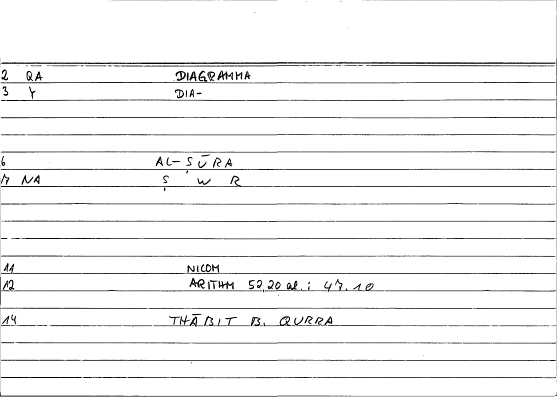 2 QA DIAGRAMMA
3 Y DIA-
6 AL-ṢŪRA
7 NA Ṣ W R
11 NICOM
12 ARITHM 52,20 al.: 47.10
14 THĀBIT B. QURRA